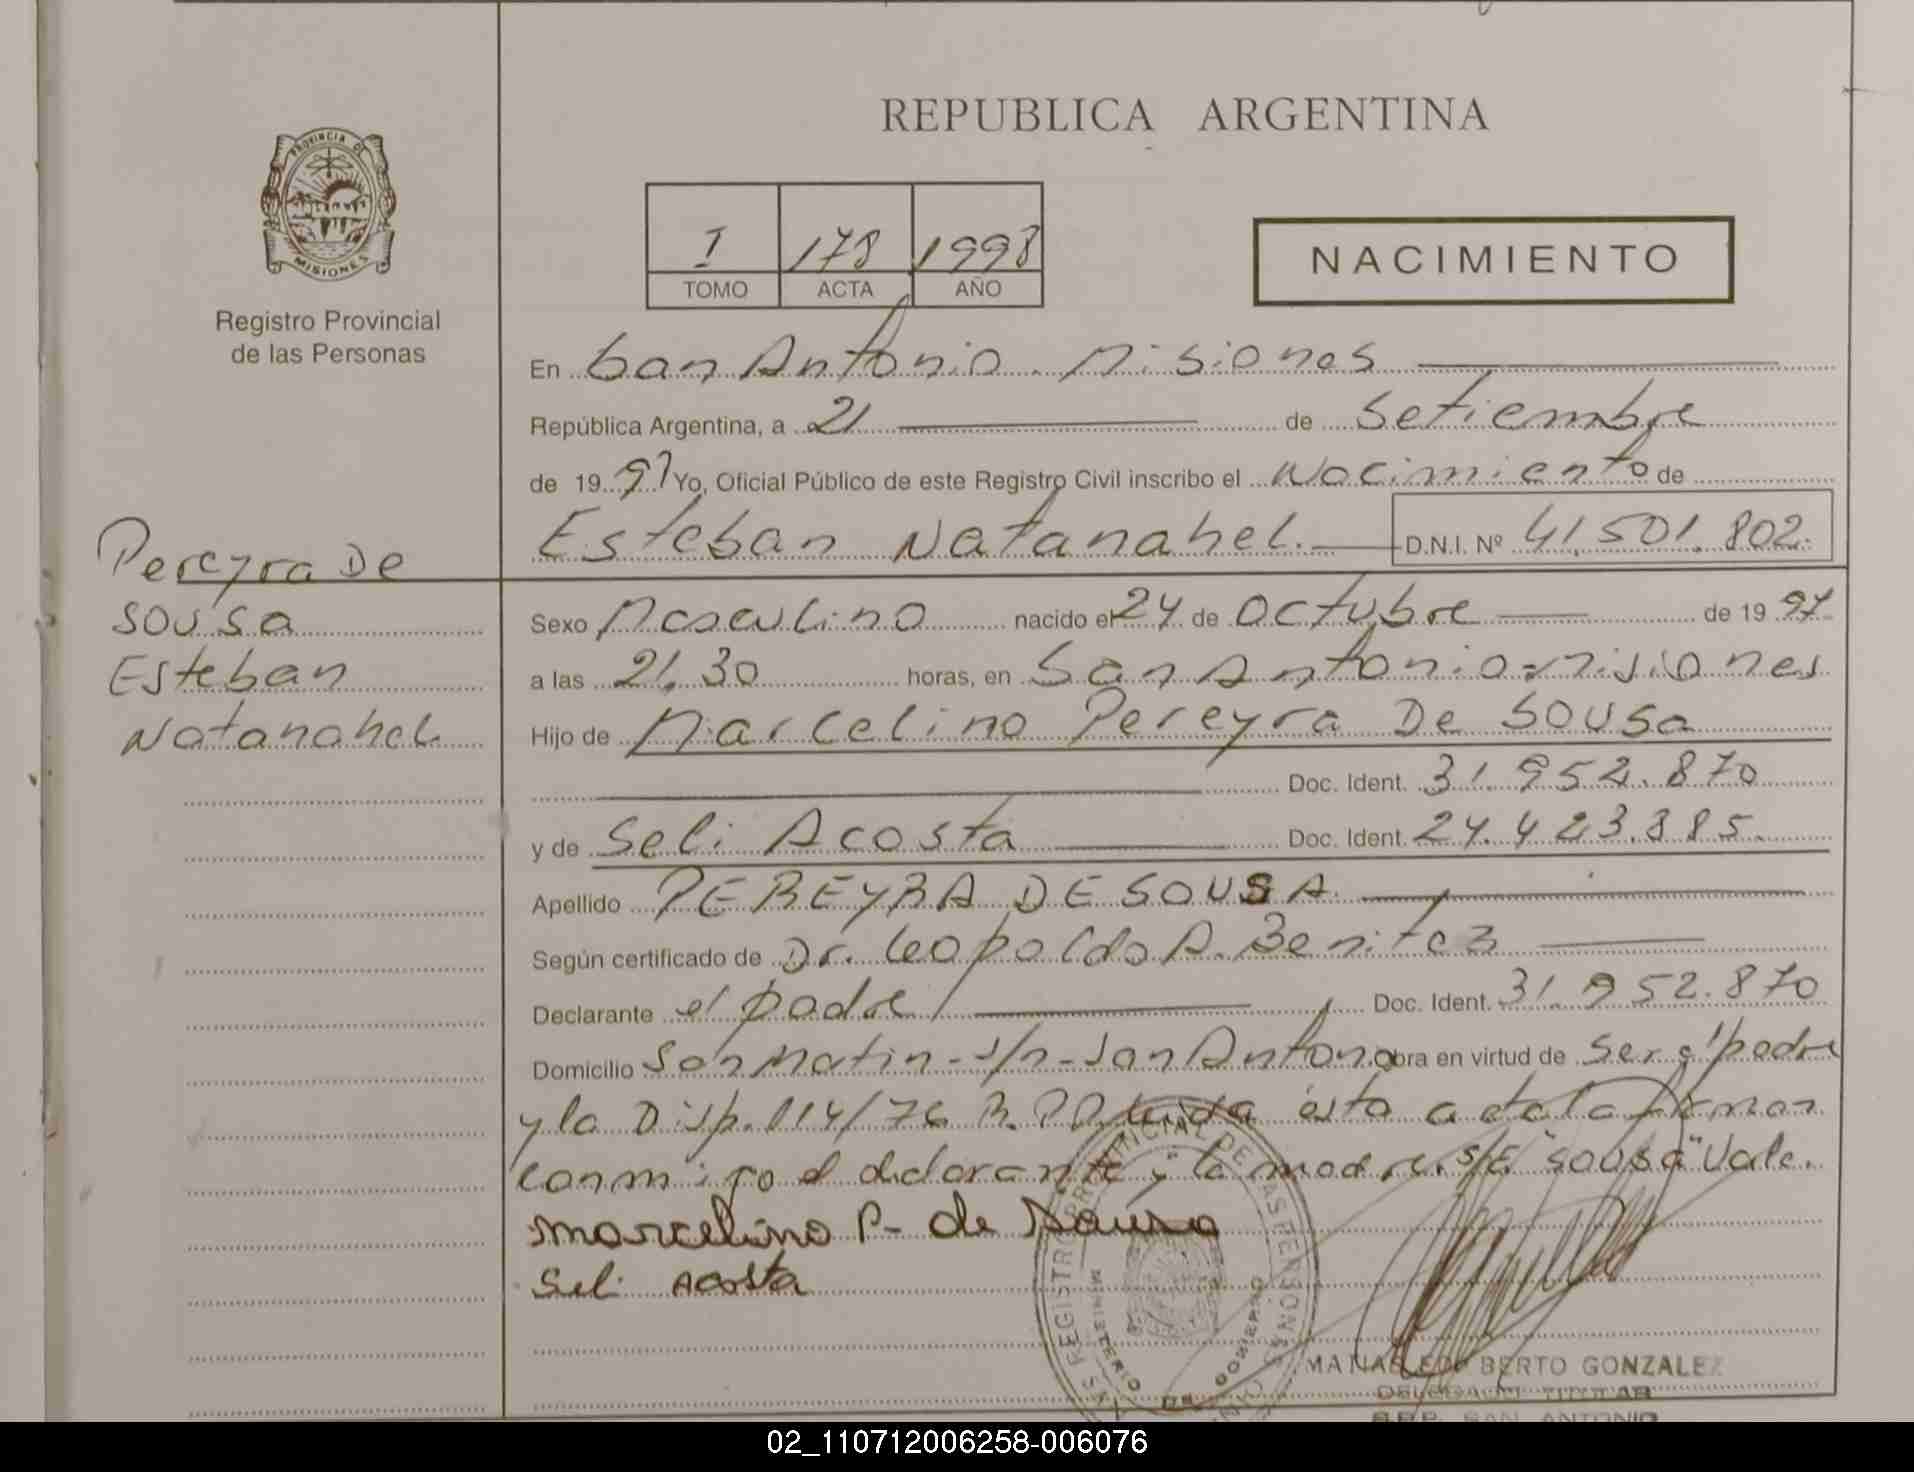 REPUBLICA ARGENTINA
PROVINCIA DE
MISIONES
Registro Provincial
de las Personas
I 178 1998
TOMO ACTA AÑO
NACIMIENTO
En San Antonio. Misiones
República Argentina, a 21 de Setiembre
de 19 97 Yo, Oficial Público de este Registro Civil inscribo el Nacimiento de
Esteban Natanahel. D.N.I. Nº 41.501.802.
Pereyra De
Sousa
Esteban
Natanahel
Sexo Masculino nacido el 24 de Octubre de 19 97
a las 21.30 horas, en San Antonio-Misiones
Hijo de Marcelino Pereyra De Sousa
Doc. Ident. 31.952.870
y de Seli Acosta Doc. Ident. 24.423.385.
Apellido PEREYRA DE SOUSA.
Según certificado de Dr. Leopoldo A. Benitez
Declarante el padre Doc. Ident. 31.952.870
Domicilio San Matin-s/n-San Antonio obra en virtud de Ser el padre
y la Disp. 114/76 R.P.P. Leida ésta acta la firman
conmigo el declarante y la madre. s/E "Sousa" Vale.
Marcelino P- de Sousa
Seli Acosta
REGISTRO PROVINCIAL DE LAS PERSONAS
MINISTERIO DE GOBIERNO
BERTO GONZALEZ
DELEGADO TITULAR
R.P.P. SAN ANTONIO
02_110712006258-006076